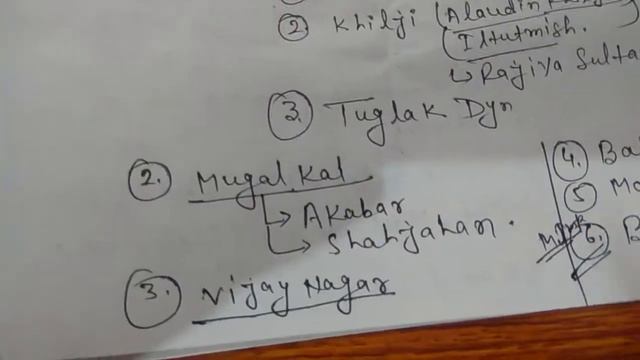 ② Khilji (Alaudin
(Iltutmish.
↳ Rajiya Sulta
③ Tuglak Dyn
②. Mugal Kal
↳ Akabar
↳ Shahjahan.
③. Vijay Nagar
④. Ba
⑤ Ma
⑥. B